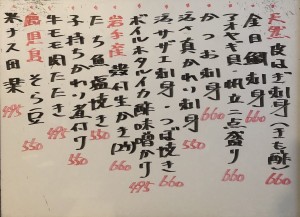 天然 皮はぎ刺身(キモ酢)
金目鯛刺身
アオヤギ貝・帆立二点盛り
かつお刺身 660
活〆真かわり刺身 660
活サザエ刺身・つぼ焼き 660
ボイルホタルイカ酢味噌かけ 495
岩手産 殻付生かき(2ヶ) 660
たち魚塩焼き 550
子持ちかれい煮付け 550
牛モモ肉たたき 495
鹿児島 そら豆 550
米ナス田楽 495